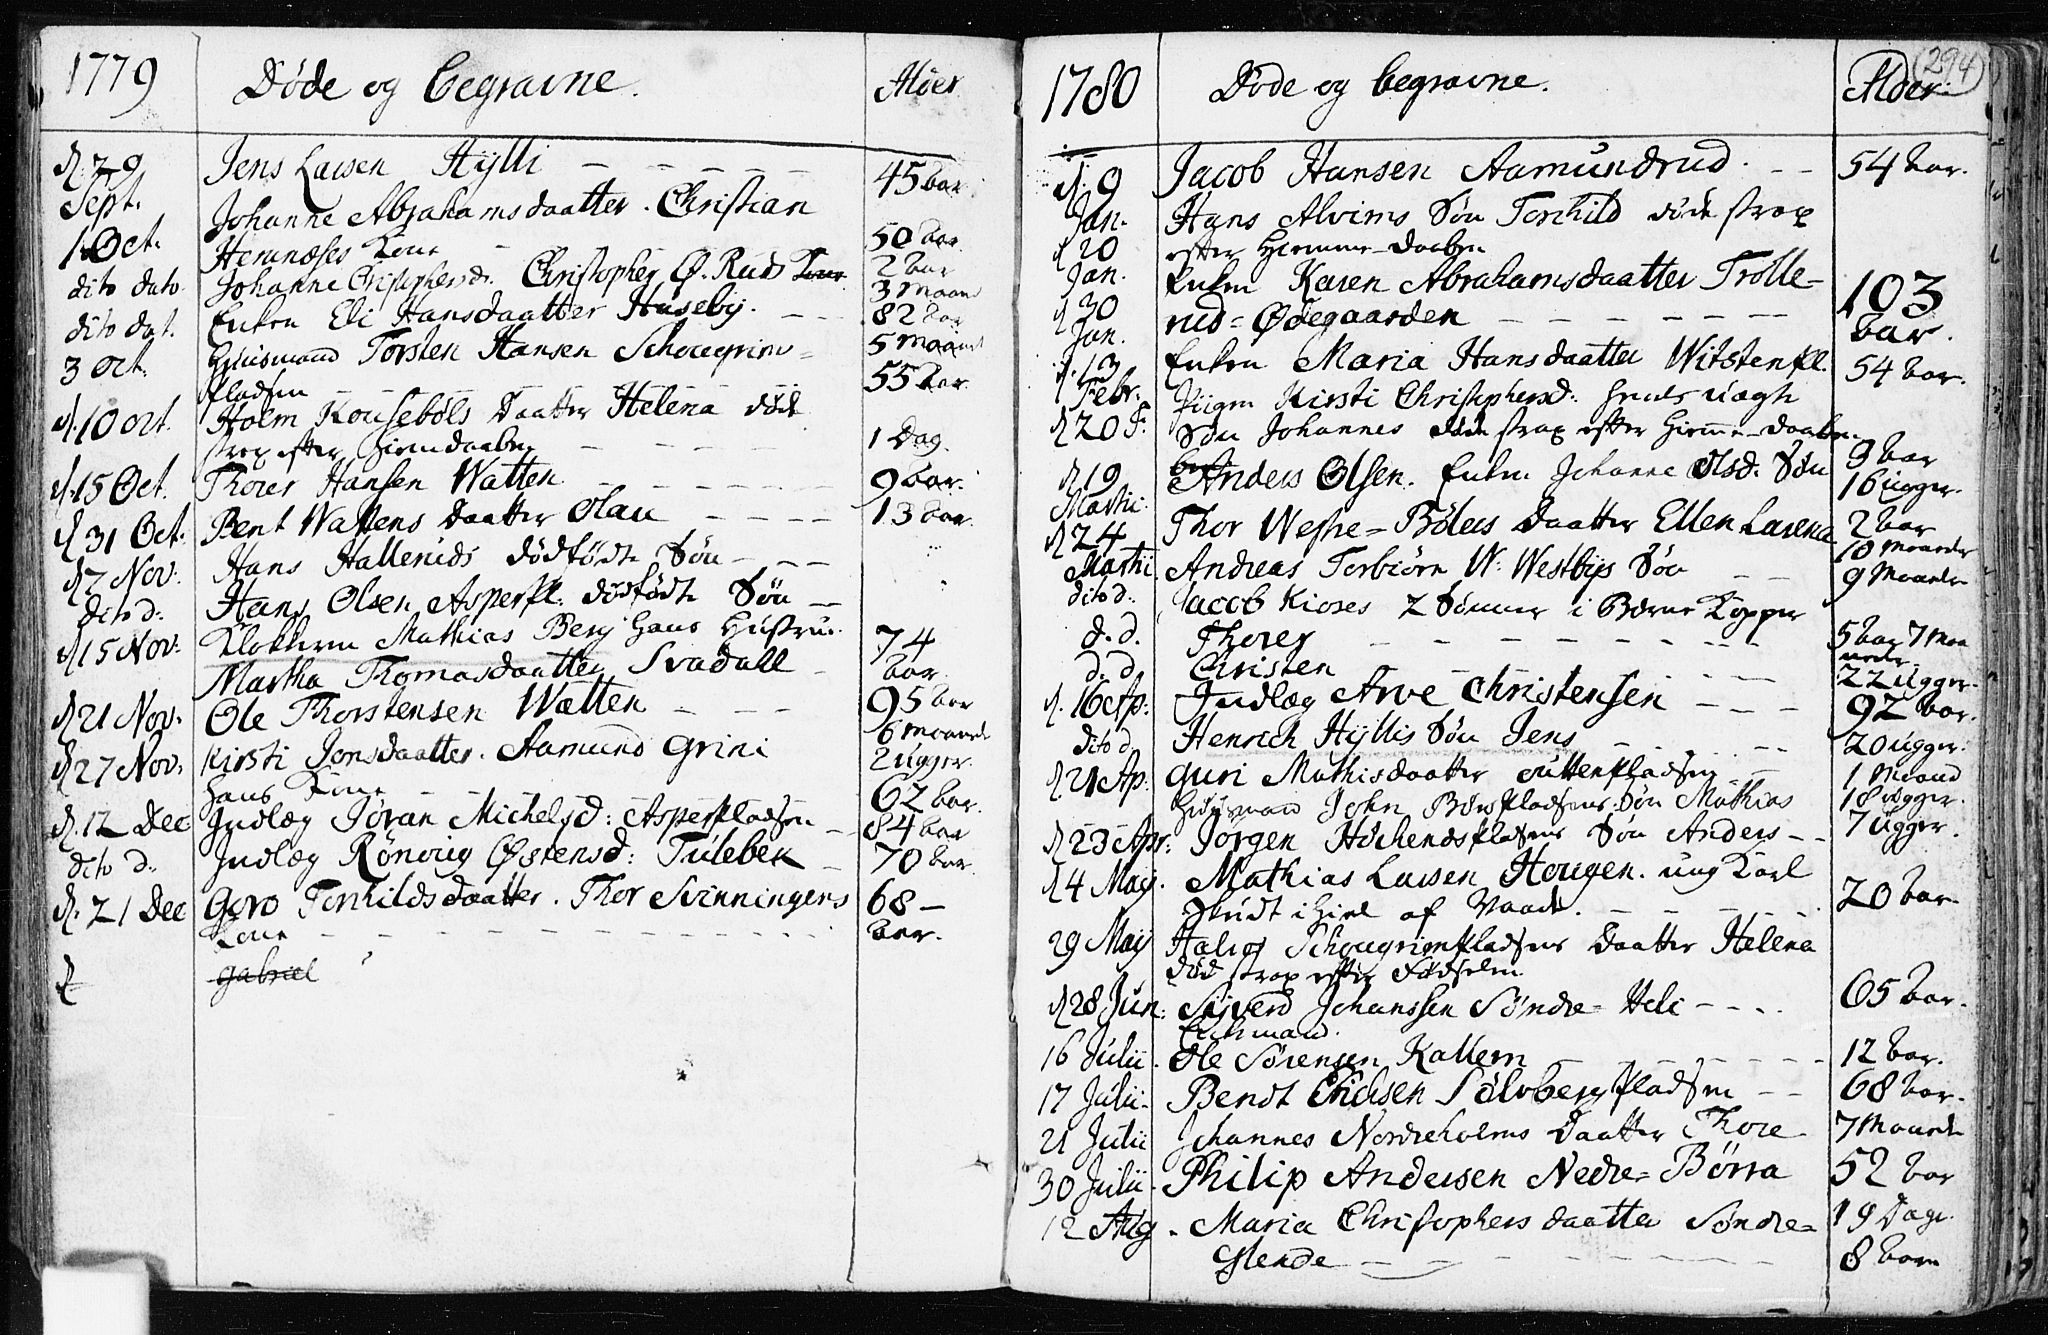 1779 Døde og begravne. Alder
d. 29 Sept. Jens Larsen Hÿlli 45 aar
1 Oct. Johanne Abrahamsdaatter. Christian
Kone 50 aar.
dito dato. Johanne Christophersd. Christopher Ø. Ruds Kone 2 aar
3 Maan
dito dat. Enken Eli Hansdaatter Huseby. 82 aar
5 Maan
3 Oct. Huusmand Torsten Hansen Schougrim=
pladsen 55 aar.
d. 10 Oct. Holm Kousebøls Daatter Helena død
strax efter Hiemdaaben 1 Dag.
d. 15 Oct. Thorer Hansen Watten 9 aar.
d. 31 Oct. Bent Wattens Daatter Olau 13 aar.
d. 7 Nov. Hans Halleruds dødfødte Søn
dito d: Hans Olsen Asperpl. dødfødte Søn
d. 15 Nov: Klokkeren Mathias Berg hans Hustrue
Martha Thomasdaatter Svadall 74 aar.
d. 21 Nov. Ole Thorstensen Watten 95 aar
6 Maaned
d. 27 Nov. Kirsti Jonsdaatter. Aamund Grini
hans Kone 2 Uger.
62 aar.
d. 12 Dec Indlæg Jøran Michelsd: Asperpladsen 84 aar
dito d: Indlæg Rønnoug Østensd: Tulebek 70 aar.
d. 21 Dec Goro Terkildsdaatter. Thor Svinningens
Kone 68 aar.
gabriel
1780 Døde og begravne. Alder. (294)
d. 9 Jan. Jacob Hansen Aamundrud. 54 aar.
d. 20 Jan. Hans Alvims Søn Terchild døde strax
efter Hiemme-Daaben
d. 30 Jan. Enken Karen Abrahamsdaatter Trolle=
rud=Ødegaarden 103 aar.
d. 13 Febr. Enken Maria Hansdaatter Witstenpl. 54 aar.
d. 20 F. Piigen Kirsti Christophersd:
Søn Johannes døde strax efter Hiemme-Daaben
d. 19 Martii. Anders Olsen. Enken Johanne Olsd. Søn 9 aar
16 Uger.
d. 24 Martii Thor Westre=Bølers Daatter Ellen Larena 2 aar
10 Maaneder
dito d. Andreas Torbiørn W: Westbys Søn 9 Maaneder
Jacob Kioses 2 Sønner i Børne Kopper
d. d. Thorer 5 aar 7 Maaneder
d. d. Christen 22 Uger.
d. 16 Ap: Indlæg Arve Christensen 92 aar.
dito d. Henrich Hÿllis Søn Jens 20 Uger.
d. 21 Ap: Guri Mathisdaatter 1 Maaned
Huusmand John Børspladsens Søn Mathias 18 Uger.
d. 23 Apr: Jørgen Høchendspladsens Søn Anders 7 Uger.
d. 4 Maÿ. Mathias Larsen Hougen. ung Karl
skudt ihiel af Vaade. 20 aar.
29 Maÿ Halvor Schougrimpladsens Daatter Helena
død strax efter Fødselen
d. 28 Jun: Sÿverd Johanssen Søndre=Heli 65 aar.
16 Julii. Ole Sørensen Kallern 12 aar.
17 Julii. Bendt Erichsen Sølvbergpladsen 68 aar.
21 Julii Johannes Nordreholms Daatter Thore 7 Maaneder
30 Julii. Philip Andersen Nedre=Børra 52 aar
12 Aug. Maria Christophersdaatter Søndre= 19 Dage
Glende 8 aar